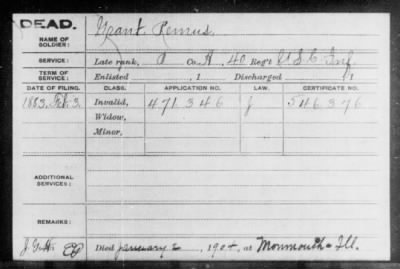 DEAD.
NAME OF SOLDIER: Grant, Remus.
SERVICE: Late rank, P Co. A, 40 Reg't U.S.C. Inf.
TERM OF SERVICE: Enlisted , 1 Discharged , 1
DATE OF FILING. CLASS. APPLICATION NO. LAW. CERTIFICATE NO.
1883, Feb. 3. Invalid, 471 346 J 546376
Widow,
Minor,
ADDITIONAL SERVICES:
REMARKS:
Died January 2, 1904, at Monmouth Ill.